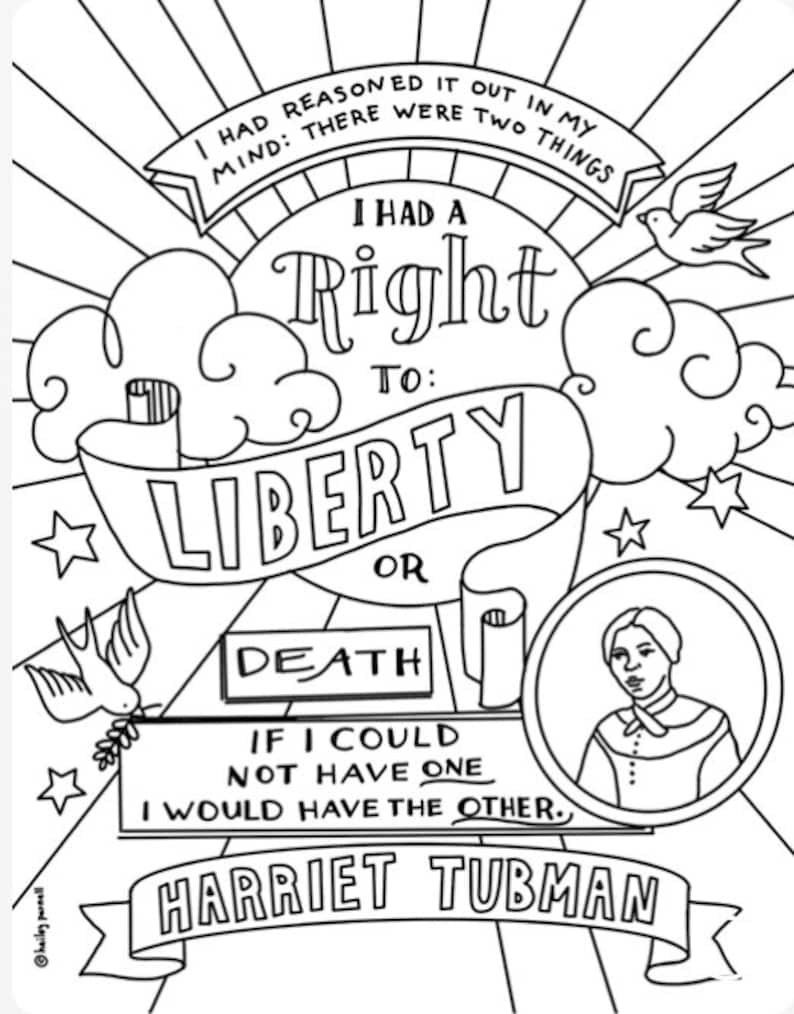 I HAD REASONED IT OUT IN MY
MIND: THERE WERE TWO THINGS
I HAD A
Right
TO:
LIBERTY
OR
DEATH
IF I COULD
NOT HAVE ONE
I WOULD HAVE THE OTHER.
HARRIET TUBMAN
©hailey parnell